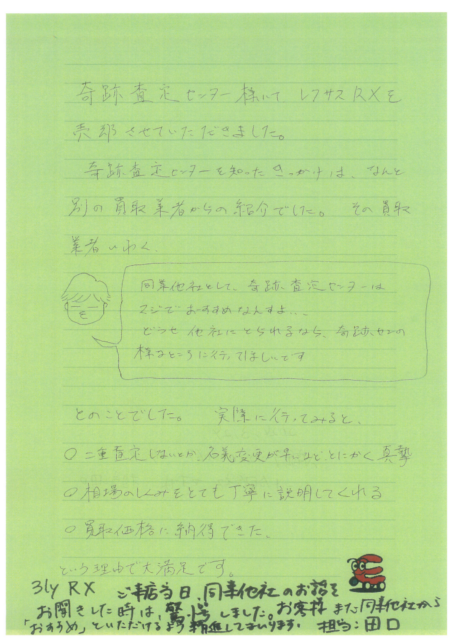 奇跡査定センター様にて レクサスRXを
売却させていただきました。
奇跡査定センターを知ったきっかけは、なんと
別の買取業者からの紹介でした。 その買取
業者いわく
同業他社として、奇跡査定センターは
マジでおすすめなんすよ...
どうせ他社にとられるなら、奇跡センの
様なところに行ってほしいっす
とのことでした。 実際に行ってみると、
○二重査定しないとか、名義変更が早いなどとにかく真摯
○相場のしくみをとても丁寧に説明してくれる
○買取価格に納得できた。
という理由で大満足です。
31y RX ご来店当日、同業他社のお話を
お聞きした時は、驚きました。お客様また同業他社から
「おすすめ」といただけるよう精進してまいります。 担当:田口